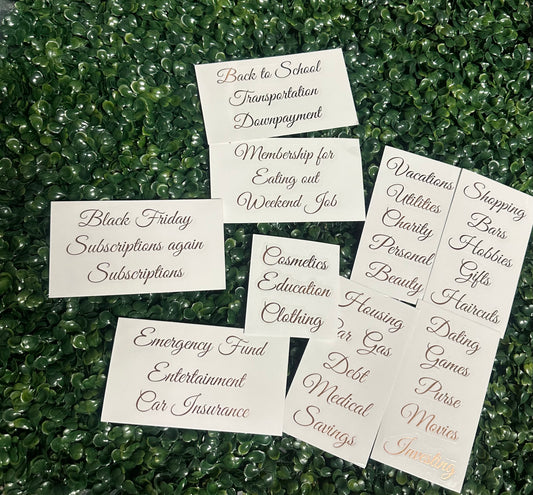 Back to School
Transportation
Downpayment
Membership for
Eating out
Weekend Job
Black Friday
Subscriptions again
Subscriptions
Cosmetics
Education
Clothing
Emergency Fund
Entertainment
Car Insurance
Vacations
Utilities
Charity
Personal
Beauty
Shopping
Bars
Hobbies
Gifts
Haircuts
Housing
Car Gas
Debt
Medical
Savings
Dating
Games
Purse
Movies
Investing